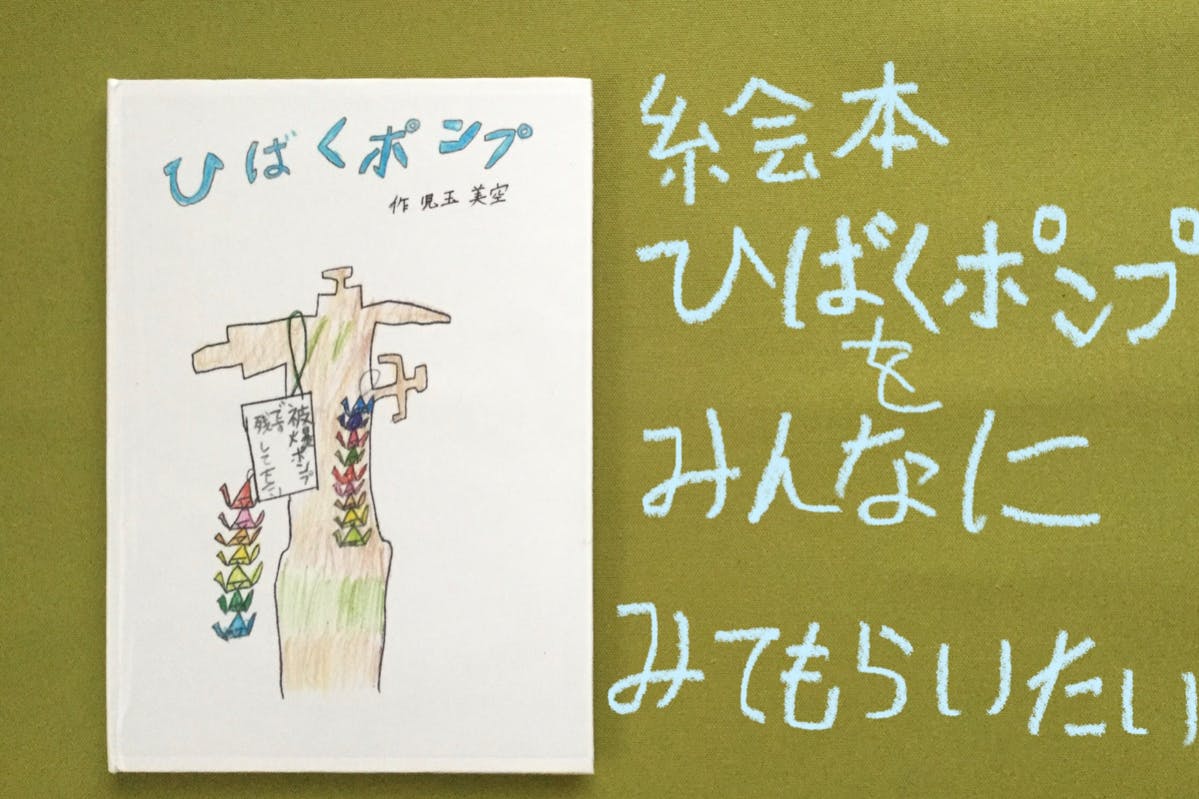 ひばくポンプ
作 児玉 美空
被爆ポンプ
です
残して下さい
絵本
ひばくポンプ
を
みんなに
みてもらいたい